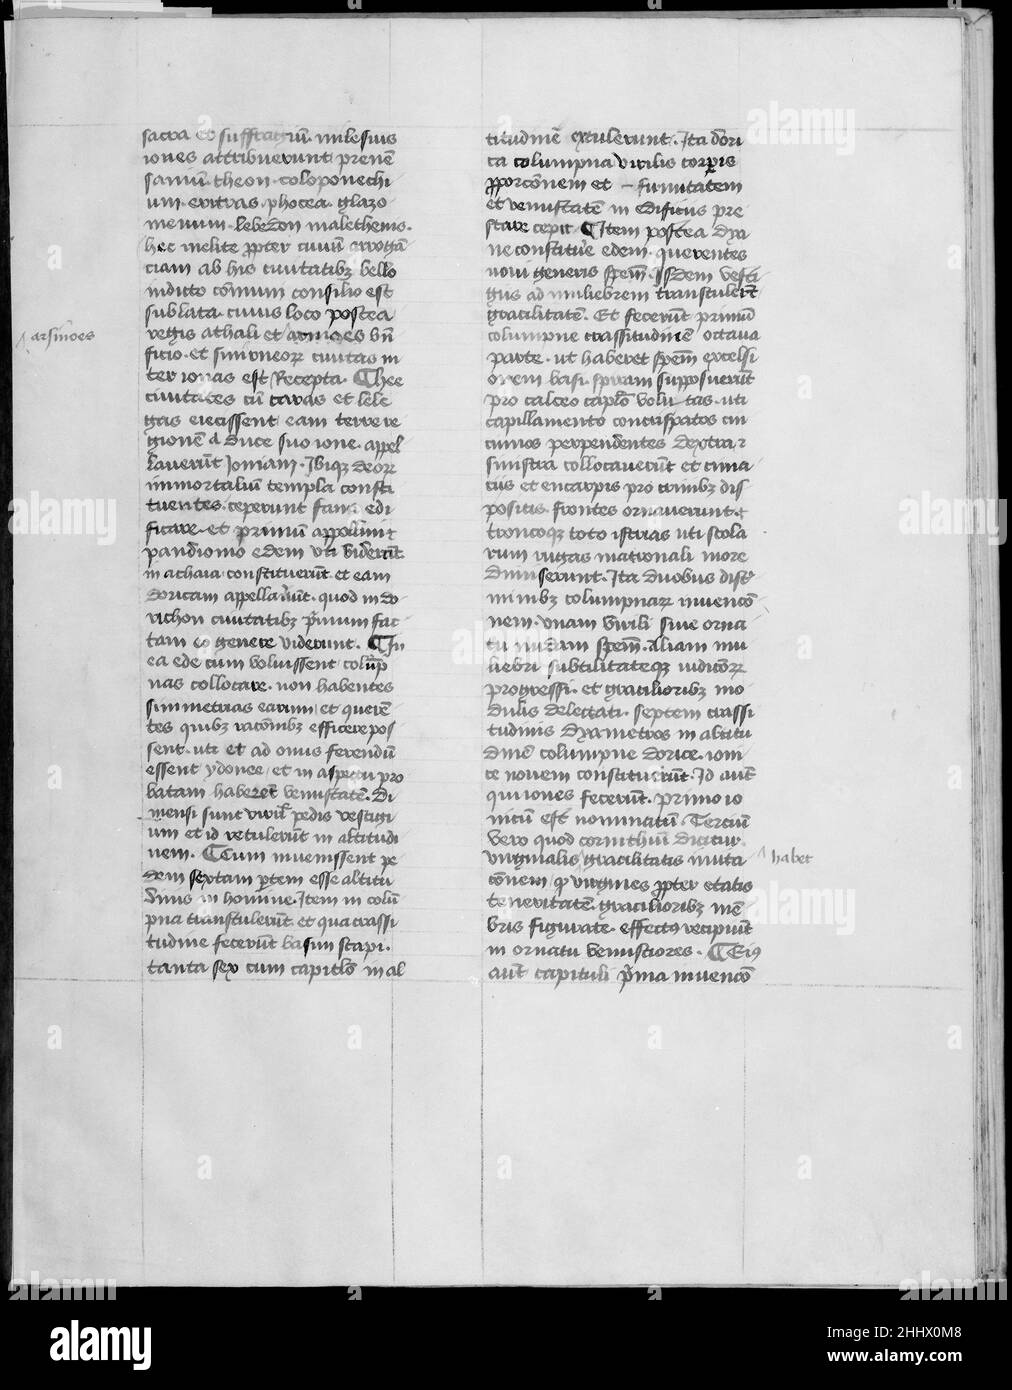 sacra et suffragiū. milesius
iones attribuerunt prenē
samiū. theon. coloponechi
um. eritras. phocea. glazo
menium. lebedon maletheniis.
hec melite ꝓpter ciuiū arrogā
ciam ab his ciuitatibꝫ bello
indicto cōmuni consilio est
sublata. cuius loco postea
regis athali et arnices bn̄
ficio. et smirneorꝝ ciuitas in
ter ionas est Recepta. ¶ hee
ciuitates cū caras et lele
gas eiecissent eam terre re
gionē a duce suo ione. appel
lauerūt Joniam. Jbiqꝫ deorꝝ
immortaliū templa consti
tuentes. ceperunt fana edi
ficare. et primū appolloni
pandiomo edem uti viderūt
in achaia constituerūt. et eam
doricam appellauerūt. quod in do
richon ciuitatibꝫ p̄mum fac
tam eo genere viderunt. ¶ Jn
ea ede cum voluissent colūp
nas collocare. non habentes
simmetrias earum et querē
tes quibꝫ racōnibꝫ efficere pos
sent. uti et ad onus ferendū
essent ydonee. et in aspectu pro
batam haberēt venustatē. Di
mensi sunt viril' pedis vestigi
um et id retulerūt in altitudi
nem. ¶ Cum inuenissent pe
dem sextam ꝑtem esse altitu
dinis in homine. Jtem in colū
pna transtulerūt. et qua crassi
tudine fecerūt basim scapi.
tanta sex cum capitlō in al
arsinoes
titudinē extulerunt. Jta dori
ca columpna virilis corꝑis
ꝓporcōnem et firmitatem
et venustatē in edificiis pre
stare cepit. ¶ Jtem postea dya
ne constituere edem. querentes
noui generis spēm. Jisdem vesti
giis ad muliebrem transtulerūt
gracilitatē. Et fecerūt primū
columpne crassitudinē octaua
parte. ut haberet spēm excelsi
orem basi. spiram supposuerūt
pro calceo caplō volutas. uti
capillamento concrispatos cin
cinnos perpendentes dextra ⁊
sinistra collocauerūt et cima
ciis et encarpis pro crinibꝫ dis
positis. frontes ornauerunt. ⁊
troncoqꝫ toto istrias uti stola
rum rugas matronali more
dimiserunt. Jta duobus discr
minibꝫ columpnarꝝ inuencō
nem. vnam virili siue orna
tu nudam spēm. Aliam mu
liebri subtilitateqꝫ iudicōrꝝ
progressi. et gracilioribꝫ mo
dulis delectati. septem crassi
tudinis dyametros in altitu
dinē columpne dorice. ioni
ce nouem constituerūt. Jd aūt
qui iones fecerūt. primo io
nicū est nominatū. Terciū
vero quod corinthiū dicitur.
virginalis gracilitatis imita
cōnem. qꝫ virgines ꝓpter etatis
teneritatē. gracilioribꝫ mē
bris figurate. effectꝰ recipiūt
in ornatu venustiores. ¶ Eiꝰ
aūt capituli p̄ma inuencō
habet